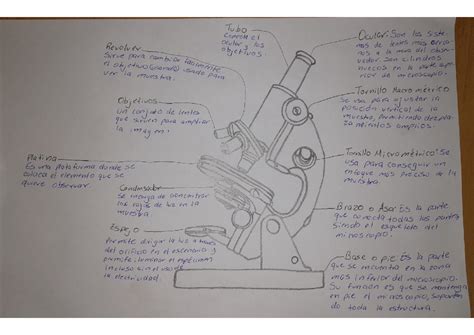 Tubo
Conecta el
ocular y los
objetivos
Ocular: Son los siste-
mas de lentes mas cerca-
nos a la mira del obser-
vador. Son cilindros
huecos en la parte sup-
erior de microscopio.
Revolver
Sirve para cambiar facilmente
el objetivo usado para
ver la muestra.
Tornillo Macrométrico
Se usa para ajustar la
posición vertical de la
muestra, permitiendo
amplios.
Objetivos
un conjunto de lentes
que sirven para ampliar
la imagen.
Tornillo Micrométrico: Se
usa para conseguir un
enfoque mas preciso de la
muestra
Platina
Es una plataforma donde se
coloca el elemento que se
quiere observar.
Condensador
Se encarga de concentrar
los rayos de luz en la
muestra
Brazo o Asa: Es la parte
que conecta todas las partes
siendo el esqueleto del
microscopio.
Espejo
Permite dirigir la luz a través
del orificio en el escenario y
permite iluminar el espécimen
incluso sin el uso de
la electricidad.
Base o pie: Es la parte
que se encuentra en la zona
mas inferior del microscopio.
Su función es que se mantenga
en pie el microscopio, soportan-
do toda la estructura.